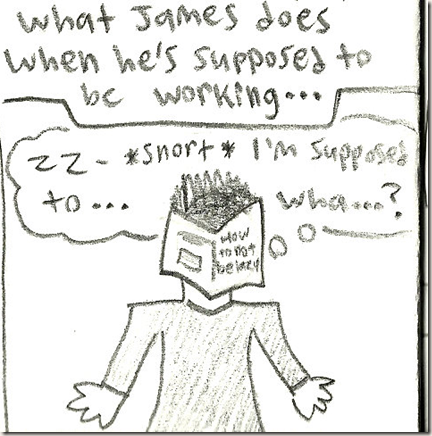 what James does
when he's supposed to
be working...
zz- *snort* I'm supposed
to... wha...?
How
to not
be lazy